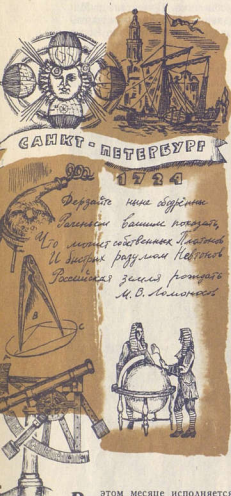 САНКТ-ПЕТЕРБУРГ
1724
Дерзайте ныне ободренны
Раченьем вашим показать,
Что может собственных Платонов
И быстрых разумом Невтонов
Российская земля рождать
М. В. Ломоносов
A
B
C
этом месяце исполняется